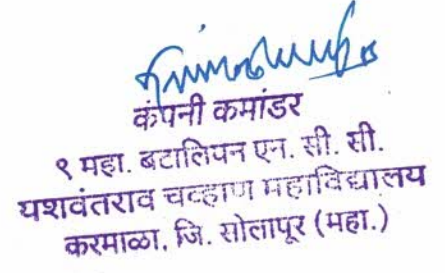 कंपनी कमांडर
९ महा. बटालियन एन. सी. सी.
यशवंतराव चव्हाण महाविद्यालय
करमाळा, जि. सोलापूर (महा.)